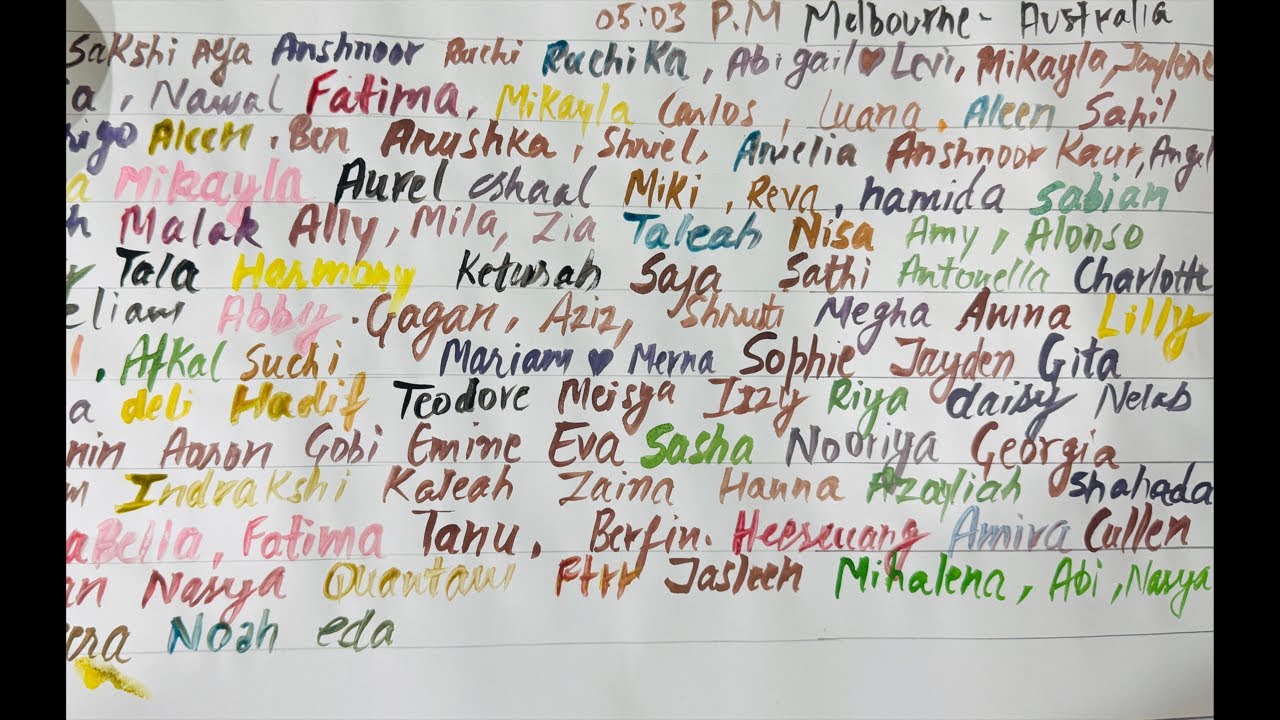 05:03 P.M Melbourne - Australia
Sakshi Aya Anshnoor Ruchi Ruchika, Abigail ♥ Levi, Mikayla, Jaylene
a, Nawal Fatima, Mikayla Carlos, Luana, Aleen Sahil
rigo Aleen. Ben Anushka, Shriel, Amelia Anshnoor Kaur, Angel
a Mikayla Aurel eshaal Miki, Reva, hamida Sabiam
h Malak Ally, Mila, Zia Taleah Nisa Amy, Alonso
Tala Harmony Keturah Saja Sathi Antonella Charlotte
eliam Abby. Gagan, Aziz, Shruti Megha Amna Lilly
. Afkal Suchi Mariam ♥ Merna Sophie Jayden Gita
a deli Hadif Teodore Meisya Izzy Riya daisy Nelab
min Aaron Gobi Emine Eva Sasha Nooriya Georgia
m Indrakshi Kaleah Zaina Hanna Azayliah Shahada
aBella, Fatima Tanu, Berfin. Heeseung Amira Cullen
an Nasya Quantam Ftrr Jasleen Mihalena, Abi, Nasya
era Noah eda